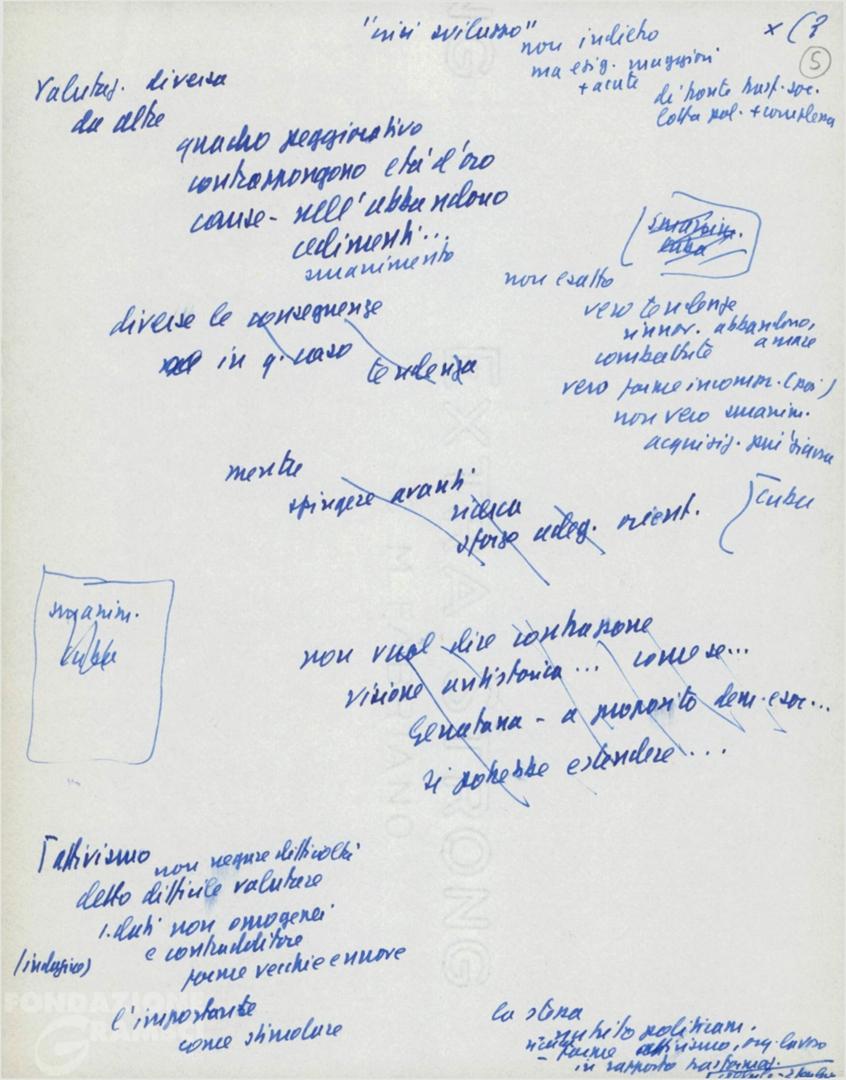 "crisi sviluppo"
non indietro
ma esig. maggiori
+ acute
di fronte trasf. soc.
lotta pol. + complessa
× (?
5
Valutaz. diversa
da altre
quadro peggiorativo
contrappongono età d'oro
cause - nell'abbandono
cedimenti...
smarrimento
(smarrim.
non esatto
vero tendenze
rinnov. abbandono,
combattute
vero forme incomp. (poi)
non vero smarrim.
acquisiz. più
diverse le conseguenze
in q. caso tendenza
mentre
spingere avanti
ricerca
sforzo adeg. orient.
Cuba
smarrim.
Cuba
non vuol dire contrazione
visione antistorica... come se...
Gerratana - a proposito dem. soc...
si potrebbe estendere...
attivismo non negare difficoltà
detto difficile valutare
1. dati non omogenei
e contraddittori
(indagine)
forme vecchie e nuove
l'importante
come stimolare
la stessa
partito politicam.
- forme attivismo, org. lavoro
in rapporto trasformaz.
FONDAZIONE
GRAMSCI
EXTRA STRONG